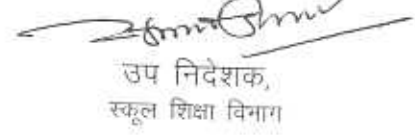 उप निदेशक,
स्कूल शिक्षा विभाग